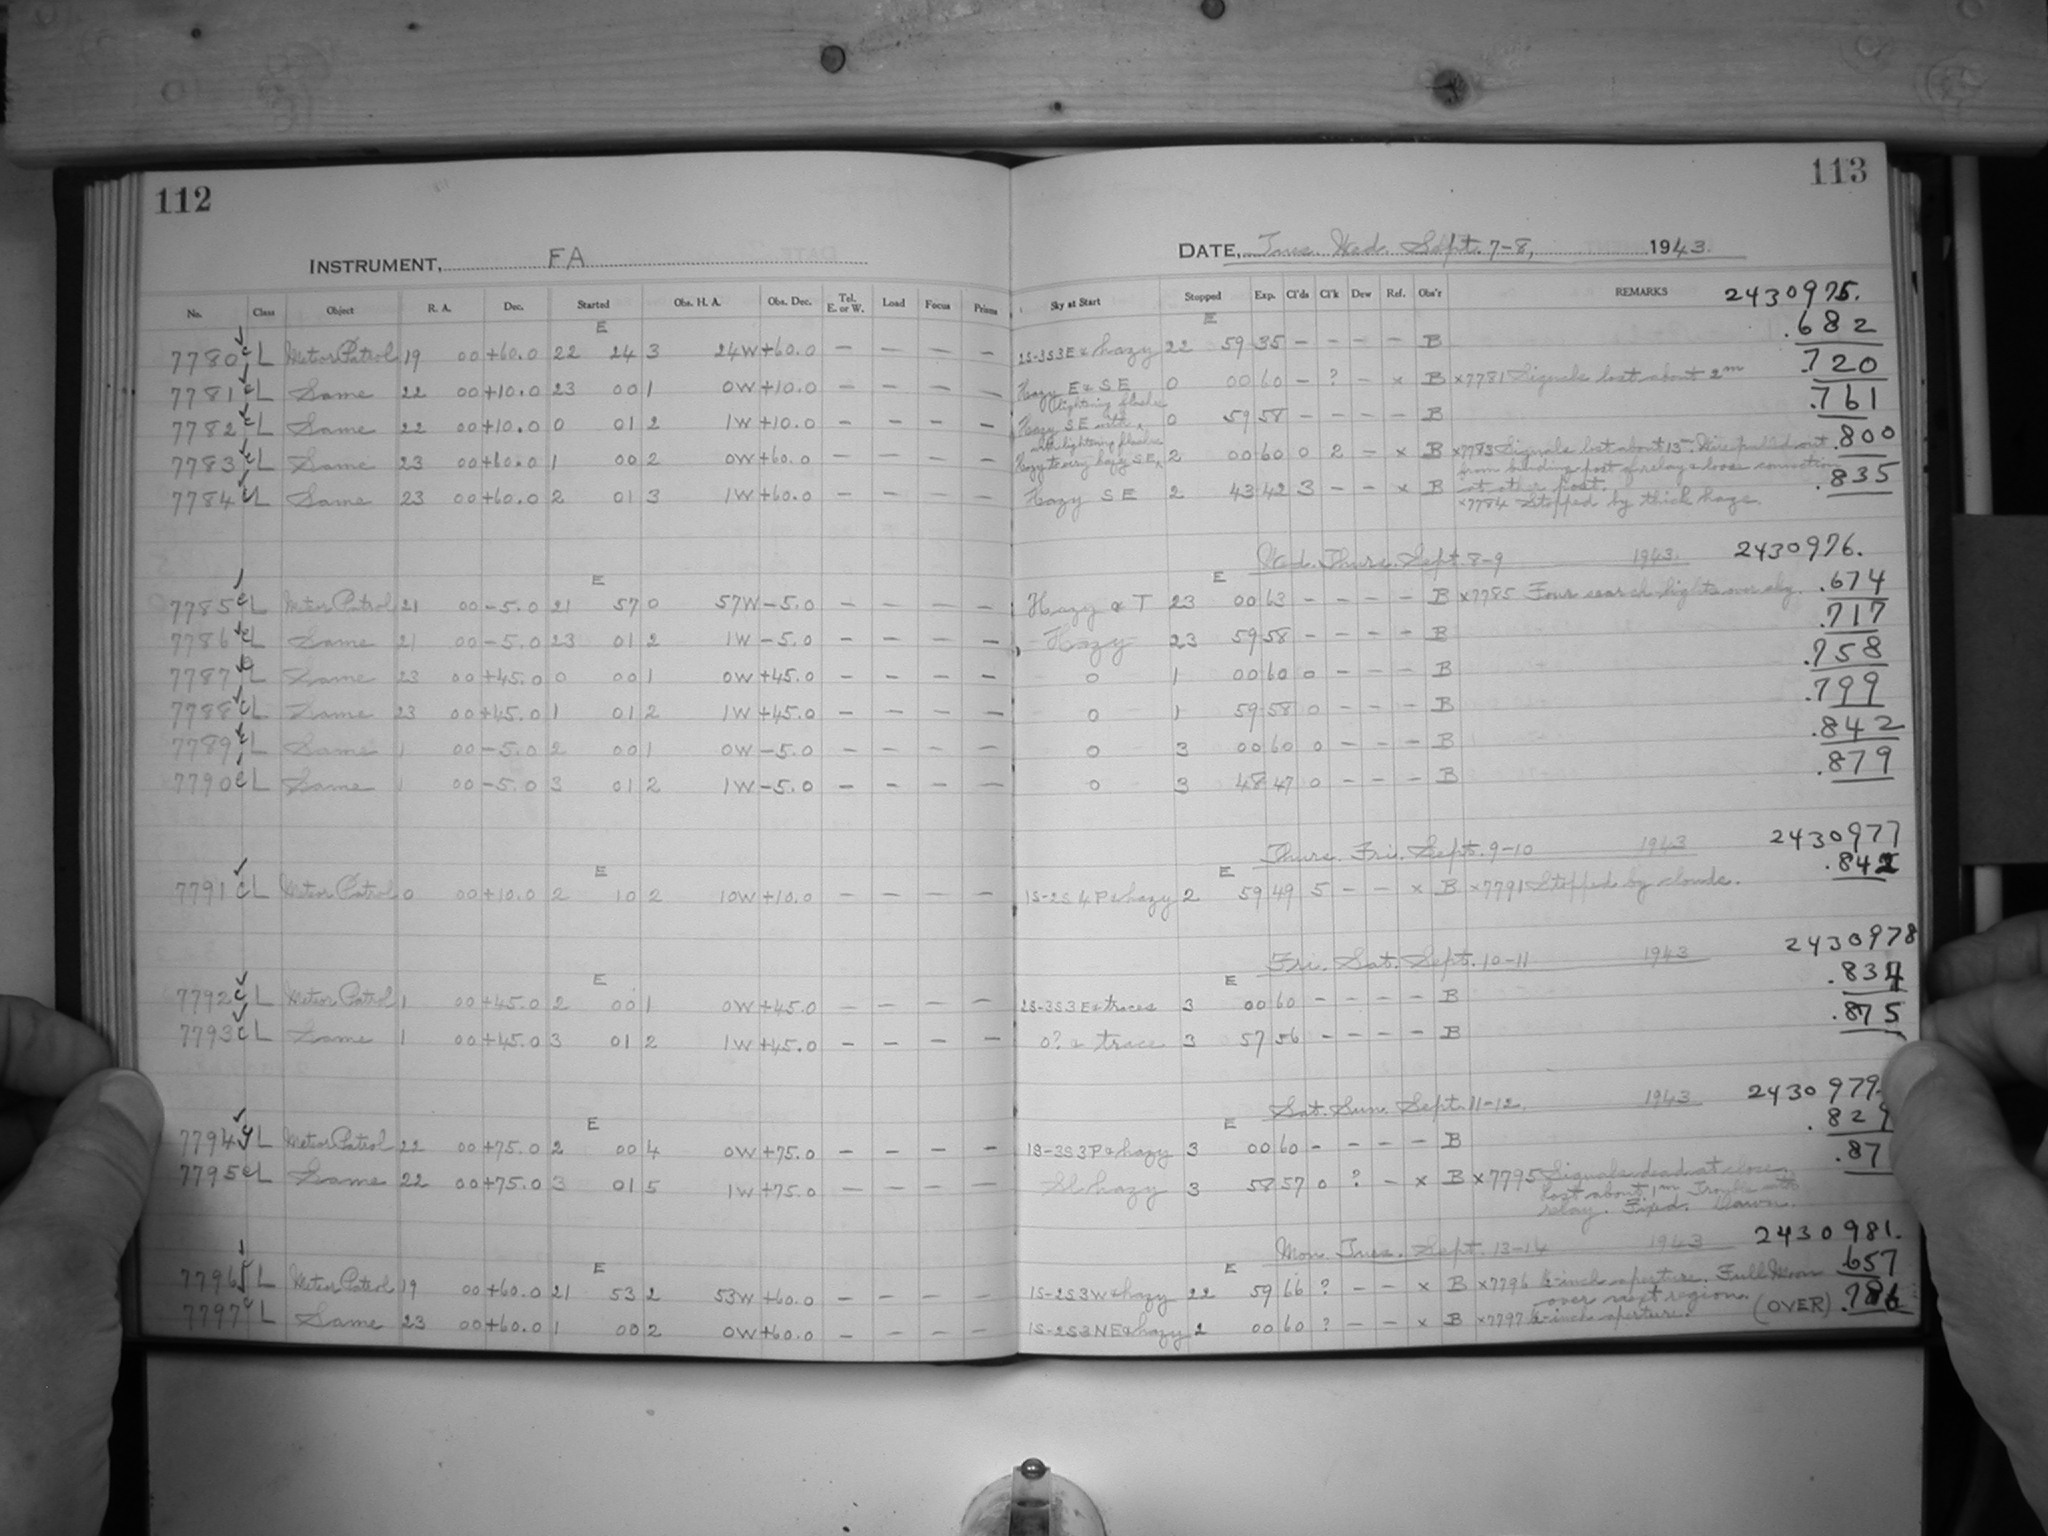 112
113
INSTRUMENT, FA
DATE, Tues. Wed. Sept. 7-8, 1943.
No. Class Object R. A. Dec. Started Obs. H. A. Obs. Dec. Tel. E. or W. Load Focus Prisms Sky at Start Stopped Exp. Cl'ds Cl'k Dew Ref. Obs'r REMARKS 2430975.
E E .682
7780 c L Meteor Patrol 19 00 +60.0 22 24 3 24W +60.0 — — — — 2S-3S3E & hazy 22 59 35 - - - - B
.720
7781 c L Same 22 00 +10.0 23 00 1 0W +10.0 — — — — Hazy E & SE 0 00 60 - ? - x B x7781 Signals lost about 2m
lightning flashes .761
7782 c L Same 22 00 +10.0 0 01 2 1W +10.0 — — — — Hazy SE with 0 59 58 - - - - B
lightning flashes .800
7783 c L Same 23 00 +60.0 1 00 2 0W +60.0 — — — — Hazy to very hazy SE 2 00 60 0 2 - x B x7783 Signals lost about 13m. Wire pulled out
from binding post of relay & loose connection
at other post. .835
7784 c L Same 23 00 +60.0 2 01 3 1W +60.0 — — — — Hazy SE 2 43 42 3 - - x B x7784 Stopped by thick haze.
Wed. Thurs. Sept. 8-9 1943. 2430976.
E E .674
7785 c L Meteor Patrol 21 00 -5.0 21 57 0 57W -5.0 — — — — Hazy & T 23 00 63 - - - - B x7785 Four search lights over sky.
.717
7786 c L Same 21 00 -5.0 23 01 2 1W -5.0 — — — — Hazy 23 59 58 - - - - B
.758
7787 c L Same 23 00 +45.0 0 00 1 0W +45.0 — — — — 0 1 00 60 0 - - - B
.799
7788 c L Same 23 00 +45.0 1 01 2 1W +45.0 — — — — 0 1 59 58 0 - - - B
.842
7789 c L Same 1 00 -5.0 2 00 1 0W -5.0 — — — — 0 3 00 60 0 - - - B
.879
7790 c L Same 1 00 -5.0 3 01 2 1W -5.0 — — — — 0 3 48 47 0 - - - B
Thurs. Fri. Sept. 9-10 1943 2430977
E E .842
7791 c L Meteor Patrol 0 00 +10.0 2 10 2 10W +10.0 — — — — 1S-2S4P & hazy 2 59 49 5 - - x B x7791 Stopped by clouds.
Fri. Sat. Sept. 10-11 1943 2430978
E E .834
7792 c L Meteor Patrol 1 00 +45.0 2 00 1 0W +45.0 — — — — 2S-3S3E & traces 3 00 60 - - - - B
.875
7793 c L Same 1 00 +45.0 3 01 2 1W +45.0 — — — — 0? & trace 3 57 56 - - - - B
Sat. Sun. Sept. 11-12. 1943 2430979.
E E .829
7794 L Meteor Patrol 22 00 +75.0 2 00 4 0W +75.0 — — — — 1S-3S3P & hazy 3 00 60 - - - - B
.87
7795 c L Same 22 00 +75.0 3 01 5 1W +75.0 — — — — Sl hazy 3 58 57 0 ? - x B x7795 Signals dead at close.
Lost about 1m. Trouble with
relay. Fixed. Dawn.
Mon. Tues. Sept. 13-14 1943 2430981.
E E .657
7796 L Meteor Patrol 19 00 +60.0 21 53 2 53W +60.0 — — — — 1S-2S3W & hazy 22 59 66 ? - - x B x7796 -inch aperture. Full Moon
over next region.
(OVER) .786
7797 c L Same 23 00 +60.0 1 00 2 0W +60.0 — — — — 1S-2S3NE & hazy 2 00 60 ? - - x B x7797 -inch aperture.